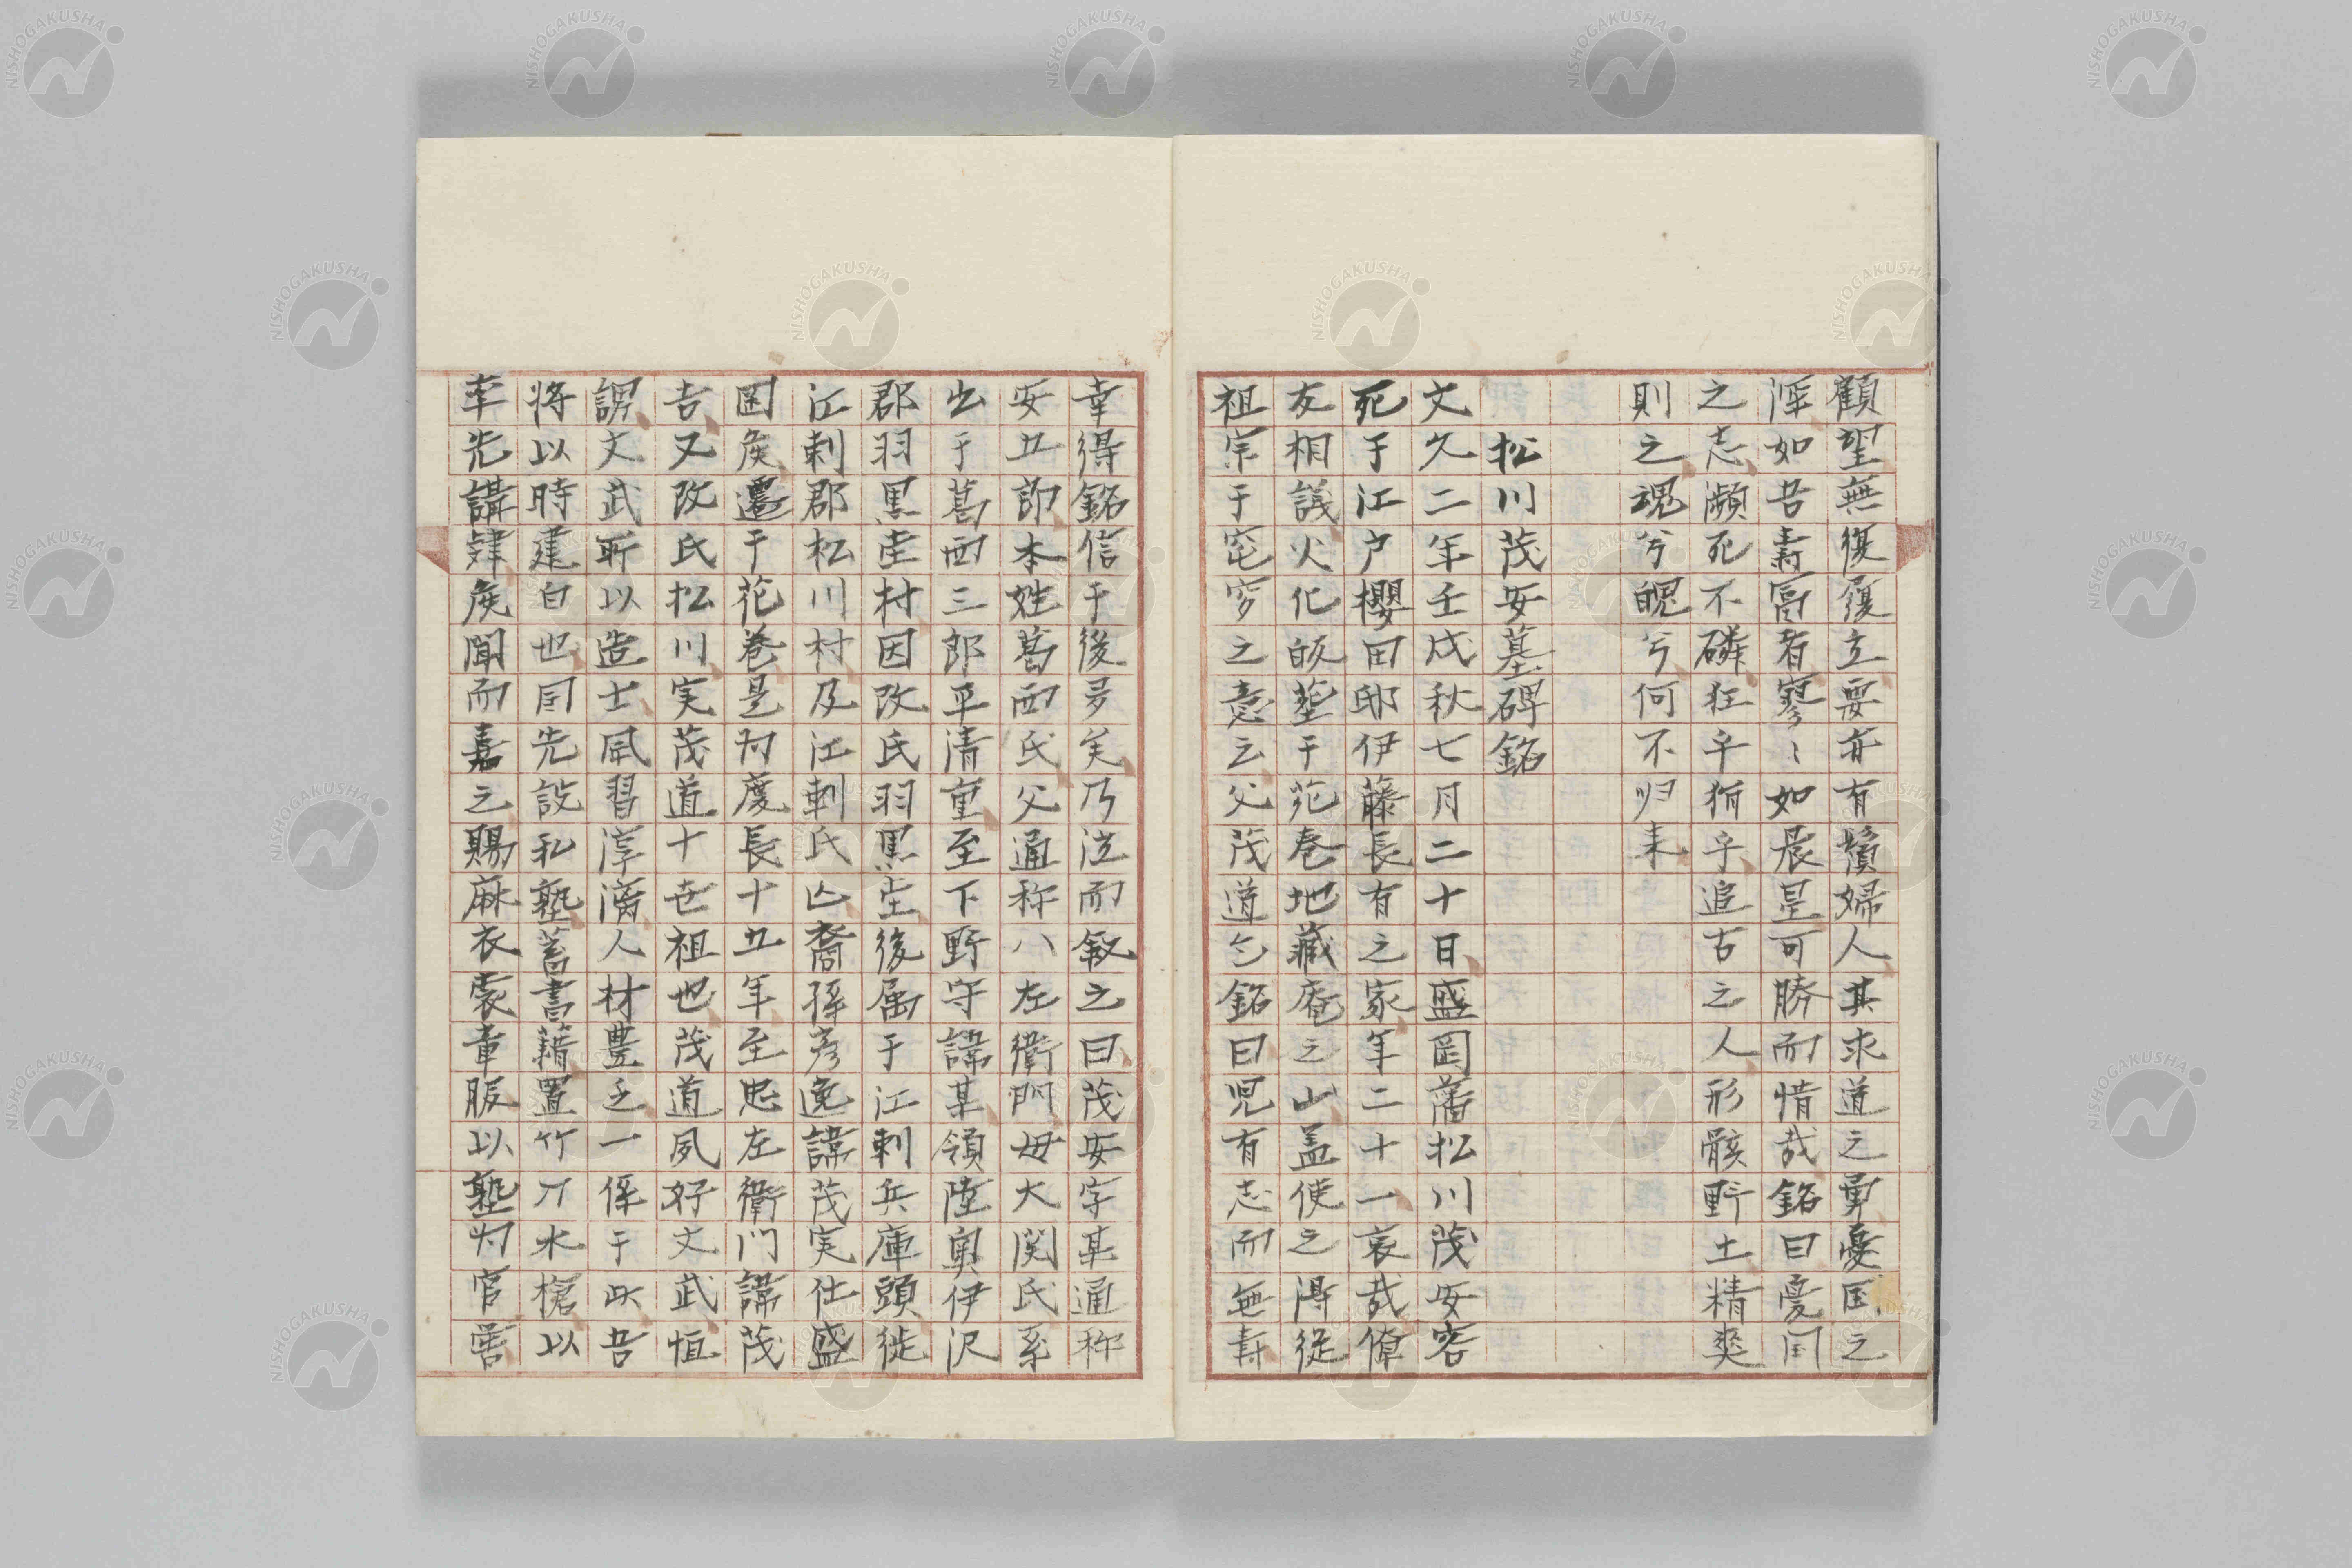 顧望無復復立要亦有鬚婦人其求道之勇憂国之
深如吾寿冨者寥〻如晨星可勝而惜哉銘曰憂国
之志瀕死不磷狂乎狷乎追古之人形骸野土精爽
則之魂兮魄兮何不归来
松川茂安墓碑銘
文久二年壬戌秋七月二十日盛岡藩松川茂安客
死于江戸櫻田邸伊藤長有之家年二十一哀哉僚
友相議火化皈葬于花巻地蔵庵之山盖使之得従
祖宗于窀穸之意云父茂道乞銘曰児有志而無寿
幸得銘信于後多矣乃泣而叙之曰茂安字某通称
安五郎本姓葛西氏父通称八左衛門母大関氏系
出于葛西三郎平清重至下野守諱某領陸奥伊沢
郡羽黒堂村因改氏羽黒堂後属于江刺兵庫頭徙
江刺郡松川村及江刺氏亡裔孫彦逸諱茂実仕盛
岡侯遷于花巻是为慶長十五年至忠左衛門諱茂
吉又改氏松川実茂道十世祖也茂道夙好文武恒
謂文武所以造士風習淳漓人材豊乏一係于此吾
将以時建白也因先設私塾蓄書藉置竹刀木槍以
率先講肄侯聞而嘉之賜麻衣裳章服以塾为官黌